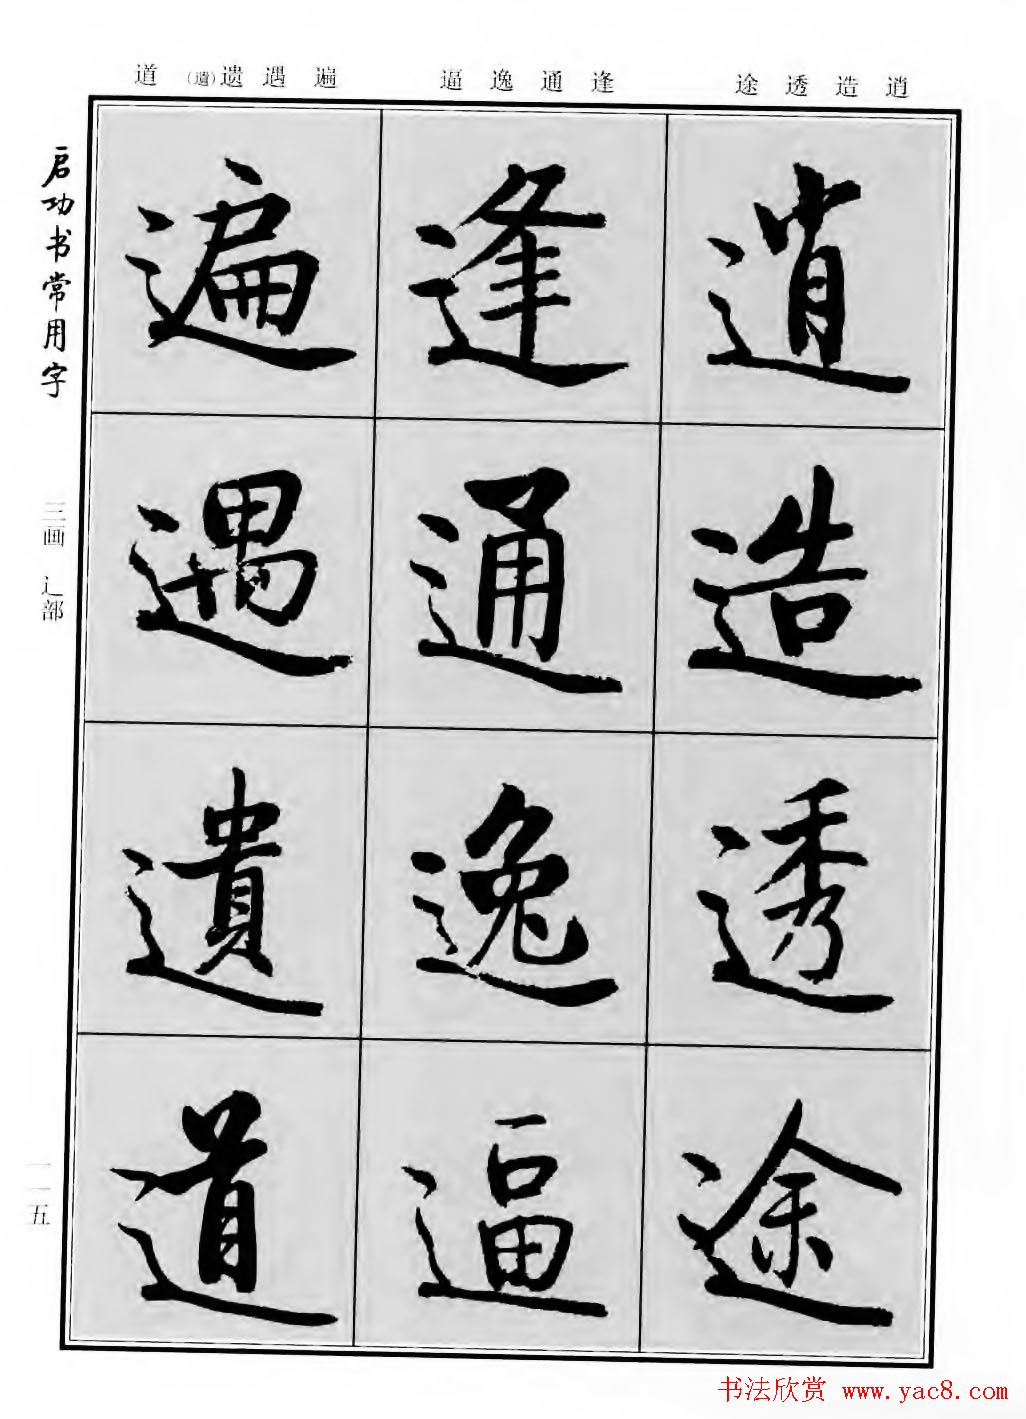 逍造透途
逢通逸逼
遍遇遗(遺)道
逍
造
透
途
逢
通
逸
逼
遍
遇
遺
道
启功书常用字
三画 辶部
一一五
书法欣赏 www.yac8.com